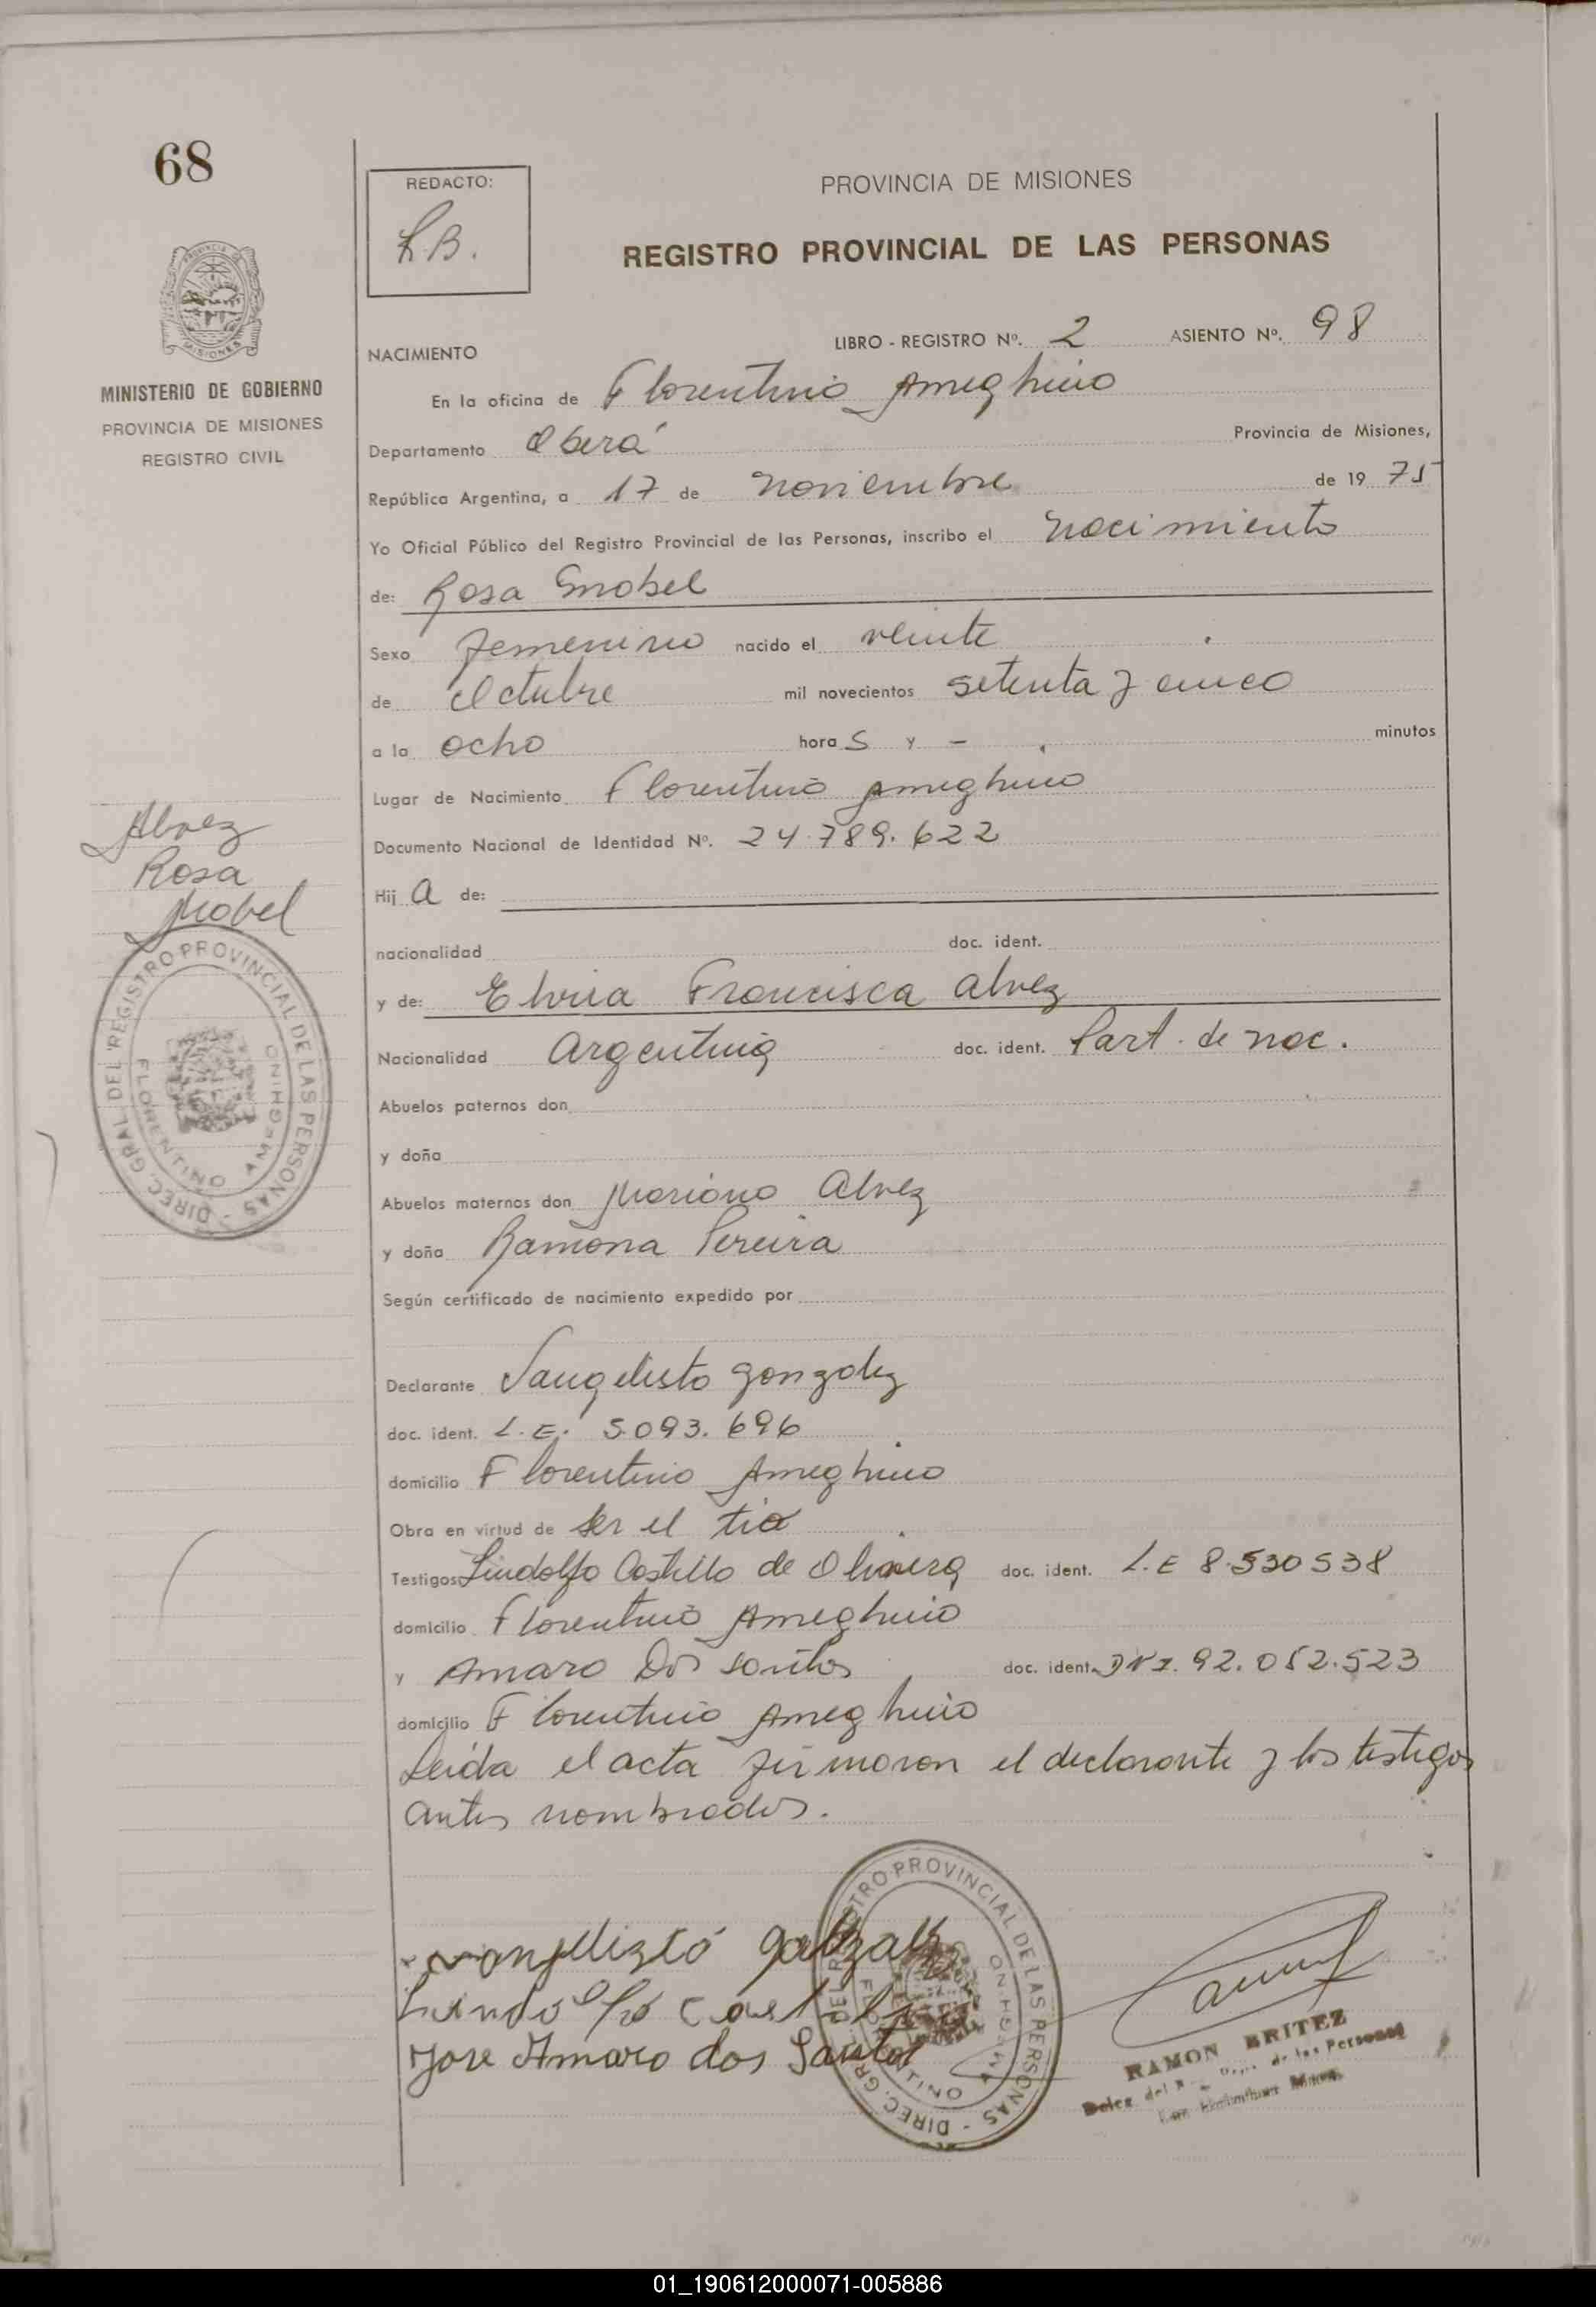 68
REDACTO:
L.B.
PROVINCIA DE MISIONES
REGISTRO PROVINCIAL DE LAS PERSONAS
PROVINCIA
MISIONES
MINISTERIO DE GOBIERNO
PROVINCIA DE MISIONES
REGISTRO CIVIL
LIBRO - REGISTRO Nº. 2 ASIENTO Nº. 98
NACIMIENTO
En la oficina de Florentino Ameghino
Departamento Oberá Provincia de Misiones,
República Argentina, a 17 de noviembre de 19 75
Yo Oficial Público del Registro Provincial de las Personas, inscribo el nacimiento
de: Rosa Mabel
Sexo femenino nacido el veinte
de Octubre mil novecientos setenta y cinco
a la ocho hora s y - minutos
Lugar de Nacimiento Florentino Ameghino
Documento Nacional de Identidad Nº. 24.789.622
Hij a de:
nacionalidad doc. ident.
y de: Elvira Francisca Alvez
Nacionalidad Argentina doc. ident. Part. de nac.
Abuelos paternos don
y doña
Abuelos maternos don Mariano Alvez
y doña Ramona Pereira
Según certificado de nacimiento expedido por
Declarante Vangelisto Gonzalez
doc. ident. L.E. 5.093.696
domicilio Florentino Ameghino
Obra en virtud de ser el tio
Testigos Lindolfo Castillo de Olivera doc. ident. L.E 8.530538
domicilio Florentino Ameghino
y Amaro Dos Santos doc. ident. DNI. 92.052.523
domicilio Florentino Ameghino
Leida el acta firmaron el declarante y los testigos
antes nombrados.
Alvez
Rosa
Mabel
DIREC. GRAL DEL REGISTRO PROVINCIAL DE LAS PERSONAS -
FLORENTINO AMEGHINO
REGISTRO PROVINCIAL DE LAS PERSONAS - DIREC. GRAL
Jose Amaro dos Santos
RAMON BRITEZ
de las Personas
01_190612000071-005886